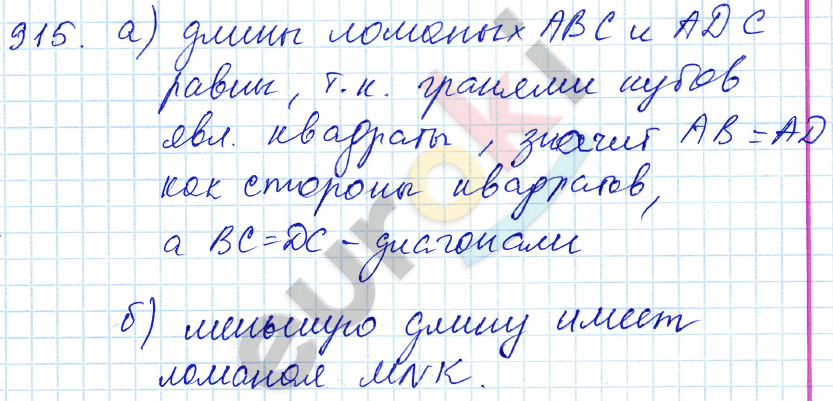 915. а) длины ломаных ABC и ADC
равны, т.к. гранями кубов
явл. квадраты, значит AB = AD
как стороны квадратов,
а BC = DC – диагонали
б) меньшую длину имеет
ломаная MNK.
euroki